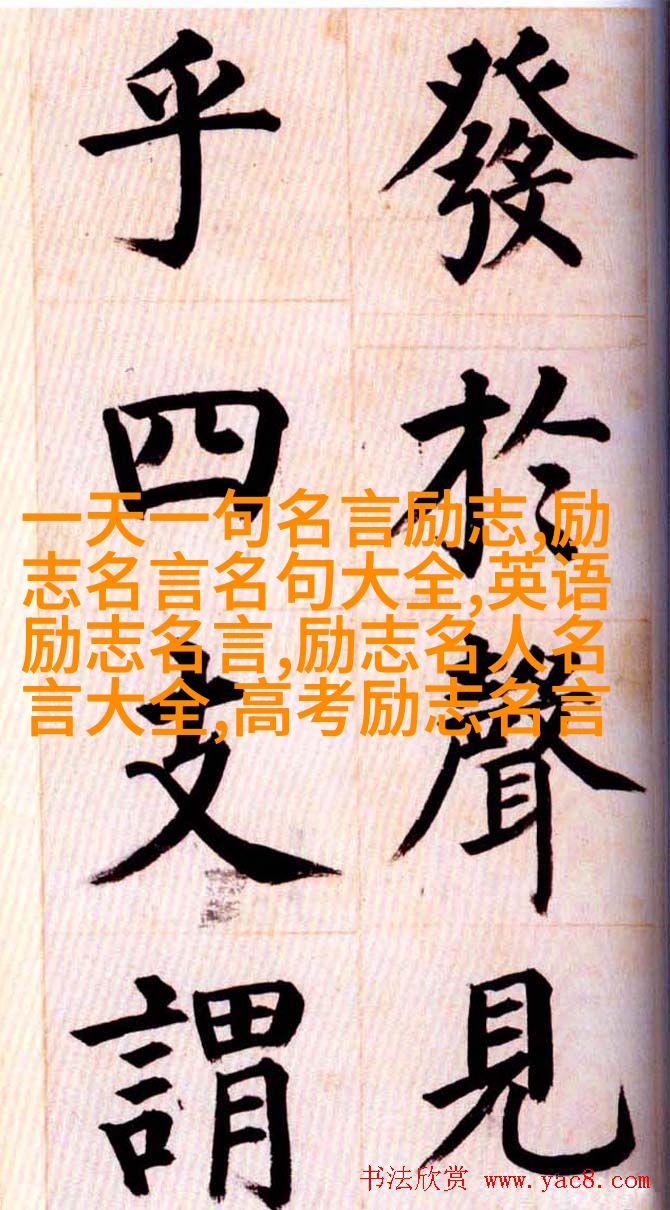 發於聲見
乎四支謂
一天一句名言励志,励
志名言名句大全,英语
励志名言,励志名人名
言大全,高考励志名言
书法欣赏 www.yac8.com